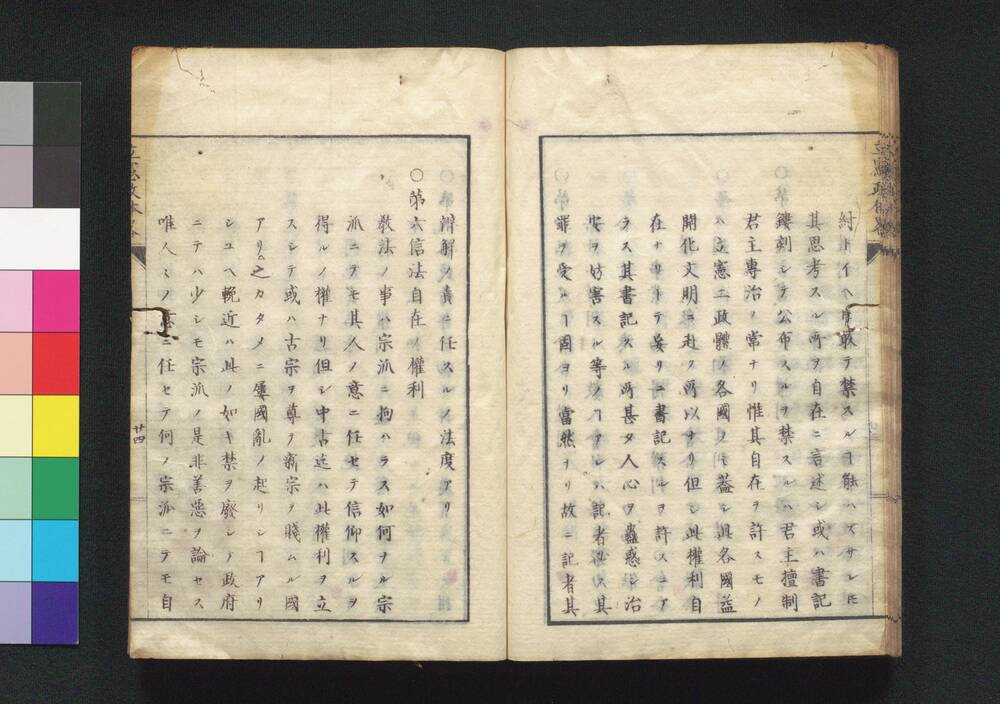 紂トイヘ𪜈敢テ禁スルヿ能ハスサレ𪜈
其思考スル所ヲ自在ニ言述シ或ハ書記
鏤刻シテ公布スルヲ禁スルハ君主擅制
君主專治ノ常ナリ惟其自在ヲ許スモノ
ハ立憲二政體ノ各國ノミ蓋シ此各國益
開化文明ニ赴ク所以ナリ但シ此權利自
在ナリトテ妄リニ書記スルヲ許スニア
ラス其書記スル所甚タ人心ヲ蠱惑シ治
安ヲ妨害スル等ノヿアレハ記者必ス其
罪ヲ受ルヿ固ヨリ當然ナリ故ニ記者其
辯解ノ責ニ任スルノ法度アリ
○第六信法自在ノ權利
敎法ノ事ハ宗派ニ拘ハラス如何ナル宗
派ニテモ其人ノ意ニ任セテ信仰スルヲ
得ルノ權ナリ但シ中古迄ハ此權利ヲ立
スシテ或ハ古宗ヲ尊ヲ新宗ヲ賤ムル國
アリ之カタメニ屢國亂ノ起リシヿアリ
シユヘ輓近ハ此ノ如キ禁ヲ廢シテ政府
ニテハ少シモ宗派ノ是非善惡ヲ論セス
唯人々ノ意ニ任セテ何ノ宗派ニテモ自
廿四